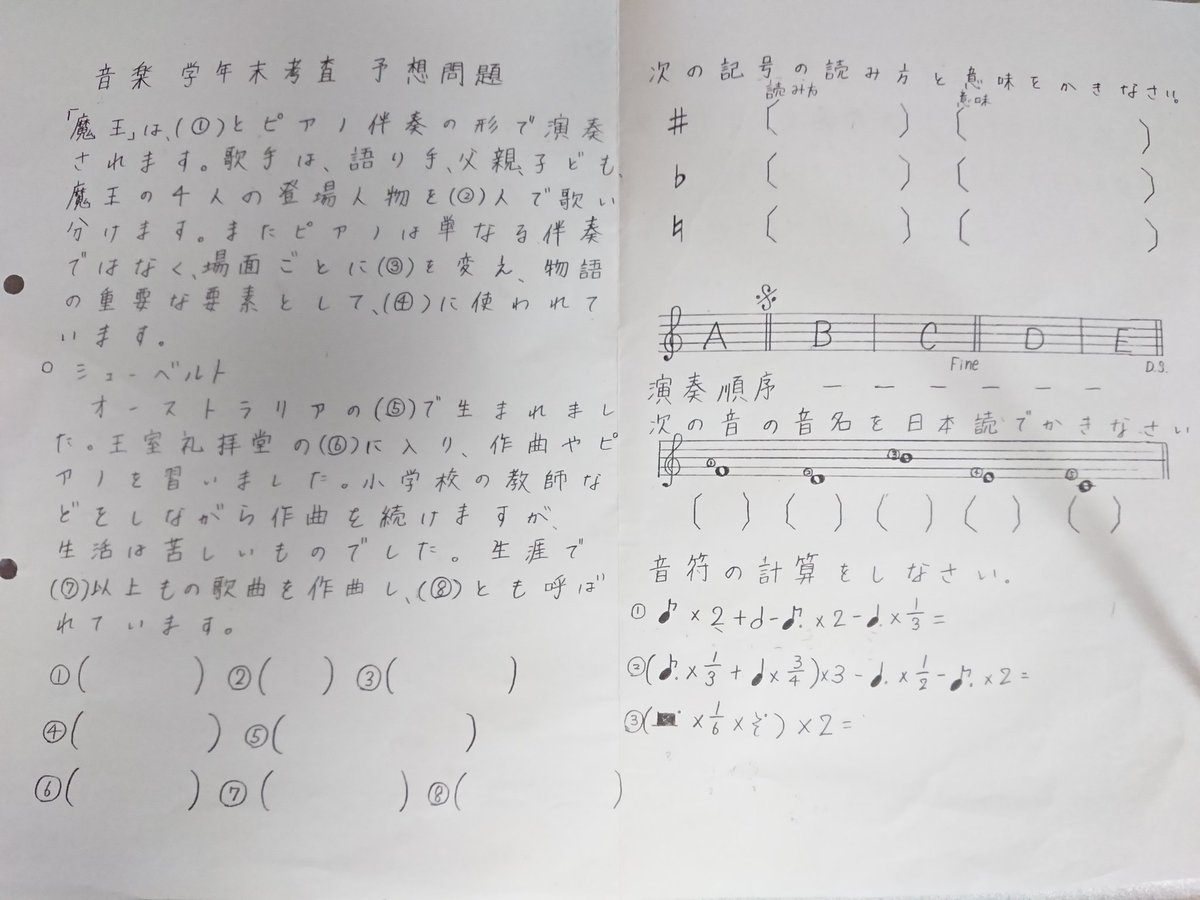 音楽 学年末考査 予想問題
「魔王」は、(①)とピアノ伴奏の形で演奏
されます。歌手は、語り手、父親、子ども、
魔王の4人の登場人物を(②)人で歌い
分けます。またピアノは単なる伴奏
ではなく、場面ごとに(③)を変え、物語
の重要な要素として、(④)に使われて
います。
○ シューベルト
オーストラリアの(⑤)で生まれまし
た。王室礼拝堂の(⑥)に入り、作曲やピ
アノを習いました。小学校の教師な
どをしながら作曲を続けますが、
生活は苦しいものでした。生涯で
(⑦)以上もの歌曲を作曲し、(⑧)とも呼ば
れています。
①( ) ②( ) ③( )
④( ) ⑤( )
⑥( ) ⑦( ) ⑧( )
次の記号の読み方と意味をかきなさい。
読み方 意味
♯ ( ) ( )
♭ ( ) ( )
♮ ( ) ( )
A B C D E
Fine D.S.
演奏順序 ー ー ー ー ー ー
次の音の音名を日本読でかきなさい
① ② ③ ④ ⑤
( ) ( ) ( ) ( ) ( )
音符の計算をしなさい。
① ♪×2+𝅗𝅥-♪.×2-♩.×1/3=
② (♪.×1/3+♩×3/4)×3-♩.×1/2-♪.×2=
③ ( ×1/6× )×2=